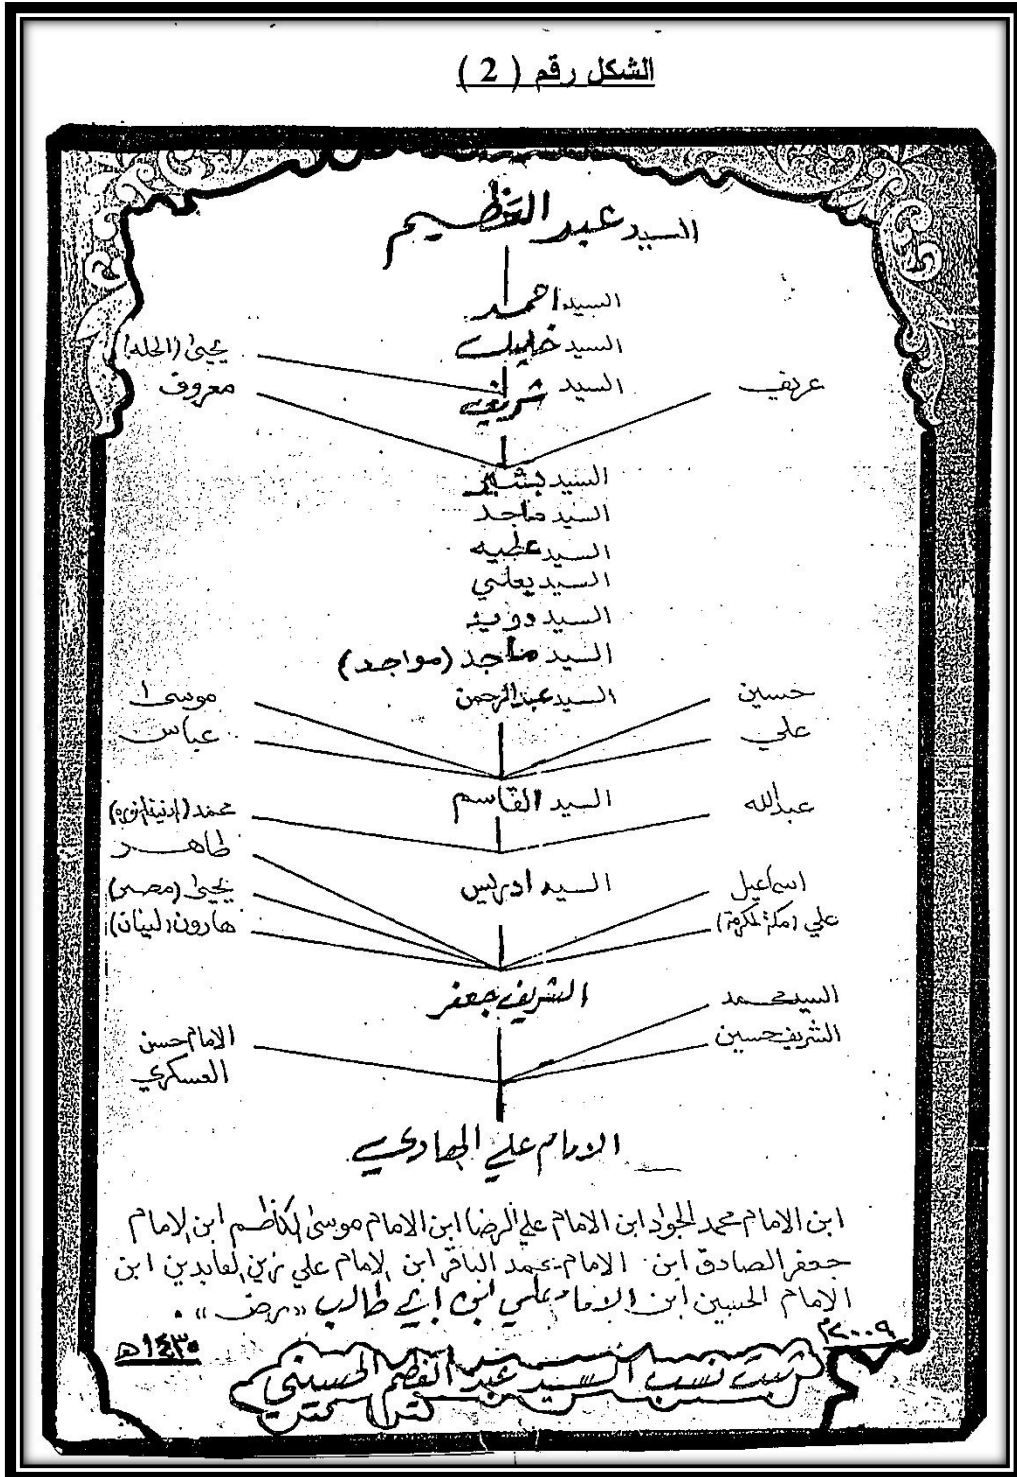 الشكل رقم ( 2 )
السيد عبد العظيم
السيد احمد
السيد خليل
يحيىٰ (الحله)
السيد شريف
عريف
معروف
السيد بشير
السيد ماجد
السيد عطيه
السيد يعلي
السيد دويد
السيد ماجد (مواجد)
السيد عبد الرحمن
حسين
موسىٰ
علي
عباس
السيد القاسم
عبد الله
محمد
طاهر
السيد ادريس
اسماعيل
يحيىٰ (مصر)
علي (مكة المكرمة)
هارون (لبنان)
الشريف جعفر
السيد محمد
الشريف حسين
الامام حسن
العسكري
الامام علي الهادي
ابن الامام محمد الجواد ابن الامام علي الرضا ابن الامام موسىٰ الكاظم ابن الامام
جعفر الصادق ابن الامام محمد الباقر ابن الامام علي زين العابدين ابن
الامام الحسين ابن الامام علي ابن ابي طالب «رض» .
٢٠٠٩م
١٤٣٠ه
ثبت نسب السيد عبد العظيم الحسيني